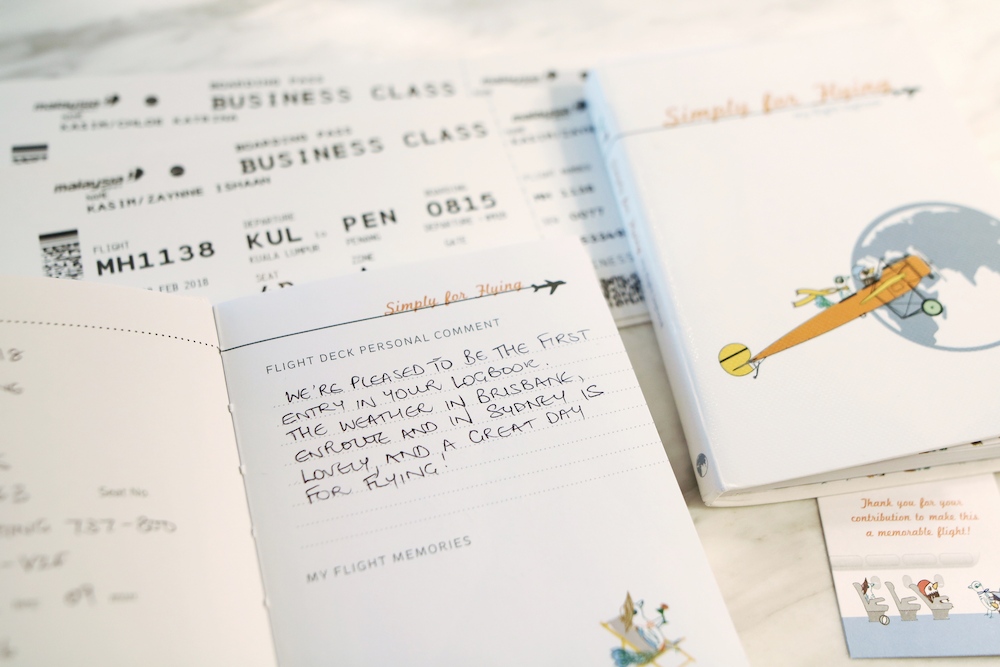 malaysia
BOARDING PASS
BUSINESS CLASS
KASIM/CHLOE KATRINA
BOARDING PASS
BUSINESS CLASS
malaysia
KASIM/ZAYNNE ISHAAM
FLIGHT
MH1138
DEPARTURE
KUL to PEN
KUALA LUMPUR PENANG
BOARDING
0815
FEB 2018
SEAT
ZONE
GATE
MH 1138
Simply for Flying
Simply for Flying
FLIGHT DECK PERSONAL COMMENT
WE'RE PLEASED TO BE THE FIRST
ENTRY IN YOUR LOGBOOK.
THE WEATHER IN BRISBANE,
ENROUTE AND IN SYDNEY IS
LOVELY, AND A GREAT DAY
FOR FLYING!
MY FLIGHT MEMORIES
Seat No.
737-800
Thank you for your
contribution to make this
a memorable flight!